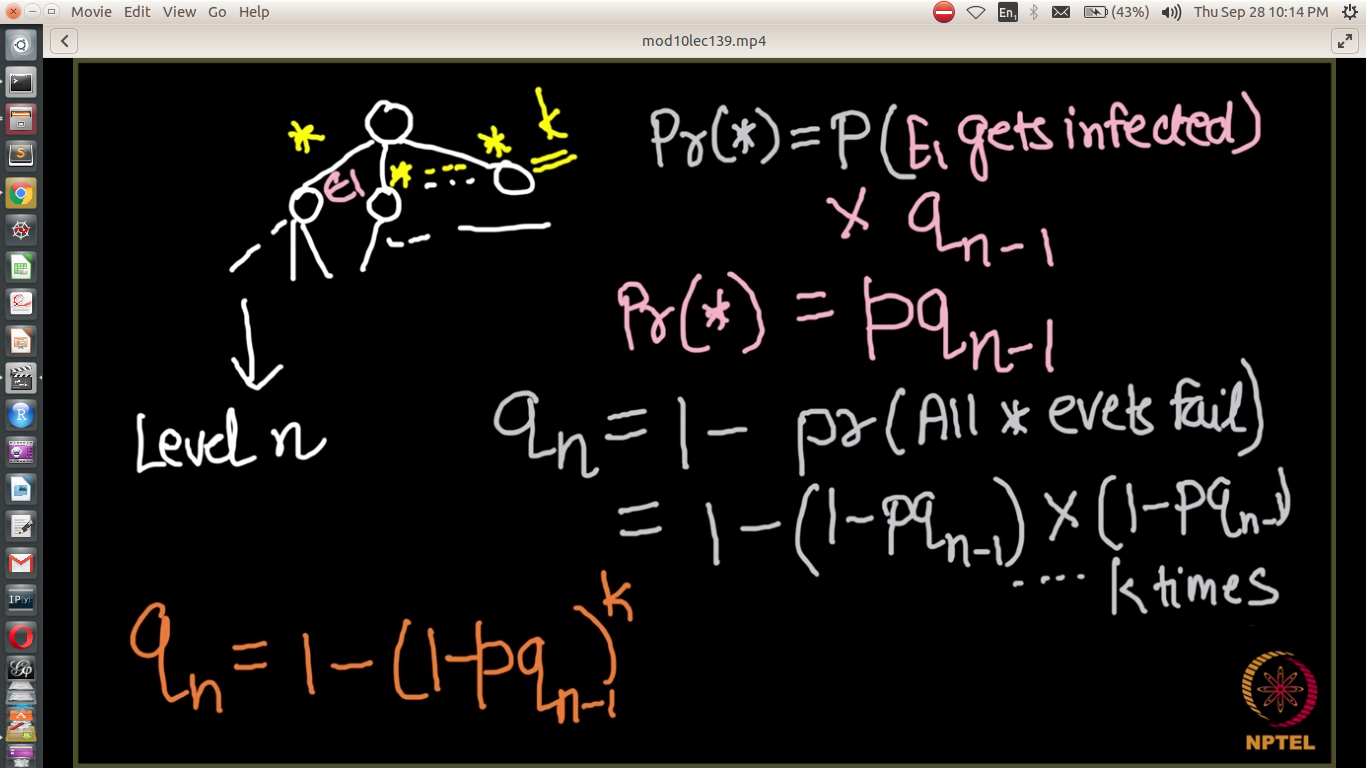 Movie Edit View Go Help
En1 (43%) Thu Sep 28 10:14 PM
mod10lec139.mp4
* * * k
E1
Pr(*) = P(E1 gets infected)
× qn-1
Pr(*) = pqn-1
Level n
qn = 1 - pr(All * evets fail)
= 1 - (1-pqn-1) × (1-pqn-1)
.... k times
qn = 1 - (1-pqn-1)^k
IP[y]:
NPTEL